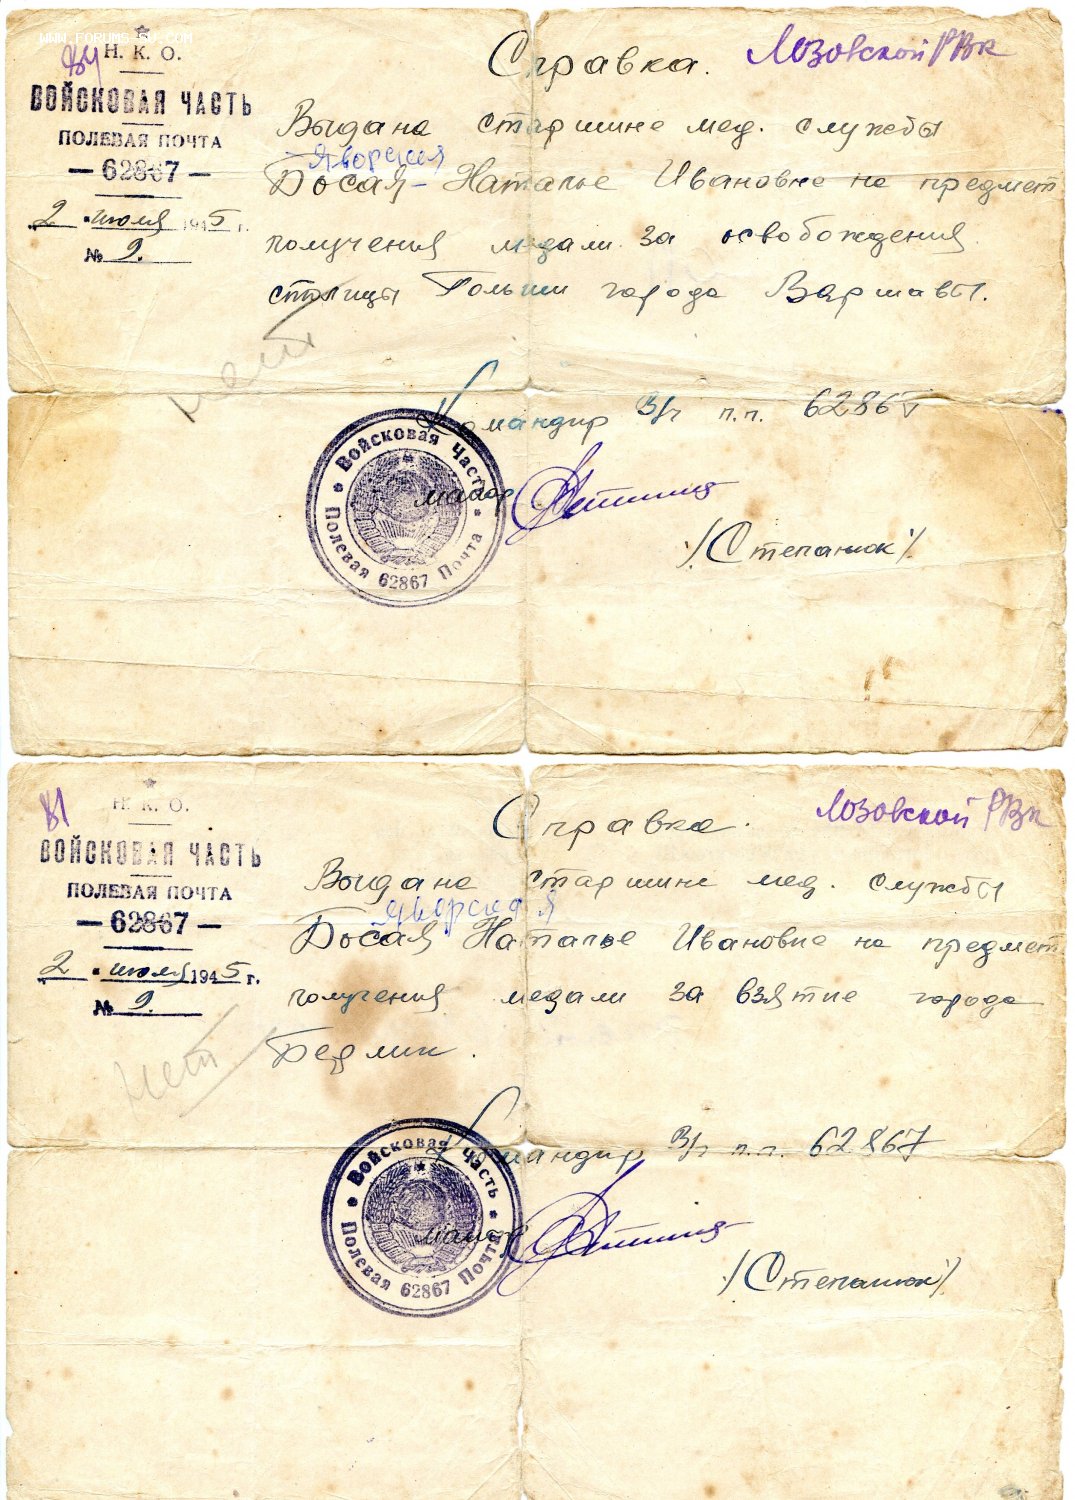 WWW.FORUMS-SU.COM
Н. К. О.
ВОЙСКОВАЯ ЧАСТЬ
ПОЛЕВАЯ ПОЧТА
— 62867 —
„2" июля 1945 г.
№ 9.
Справка.
Лозовской РВК
Выдана старшине мед. службы
Яворская
Босая - Наталье Ивановне на предмет
получения медали за освобождения
столицы Польши города Варшавы.
нет
Командир в/ч п.п. 62867
майор
/Степанюк/
Войсковая Часть
Полевая 62867 Почта
81
Н. К. О.
ВОЙСКОВАЯ ЧАСТЬ
ПОЛЕВАЯ ПОЧТА
— 62867 —
„2" июля 1945 г.
№ 9.
Справка.
Лозовской РВК
Выдана старшине мед. службы
Яворская
Босая Наталье Ивановне на предмет
получения медали за взятие города
Берлин.
нет
Командир в/ч п.п. 62867
майор
/Степанюк/
Войсковая Часть
Полевая 62867 Почта